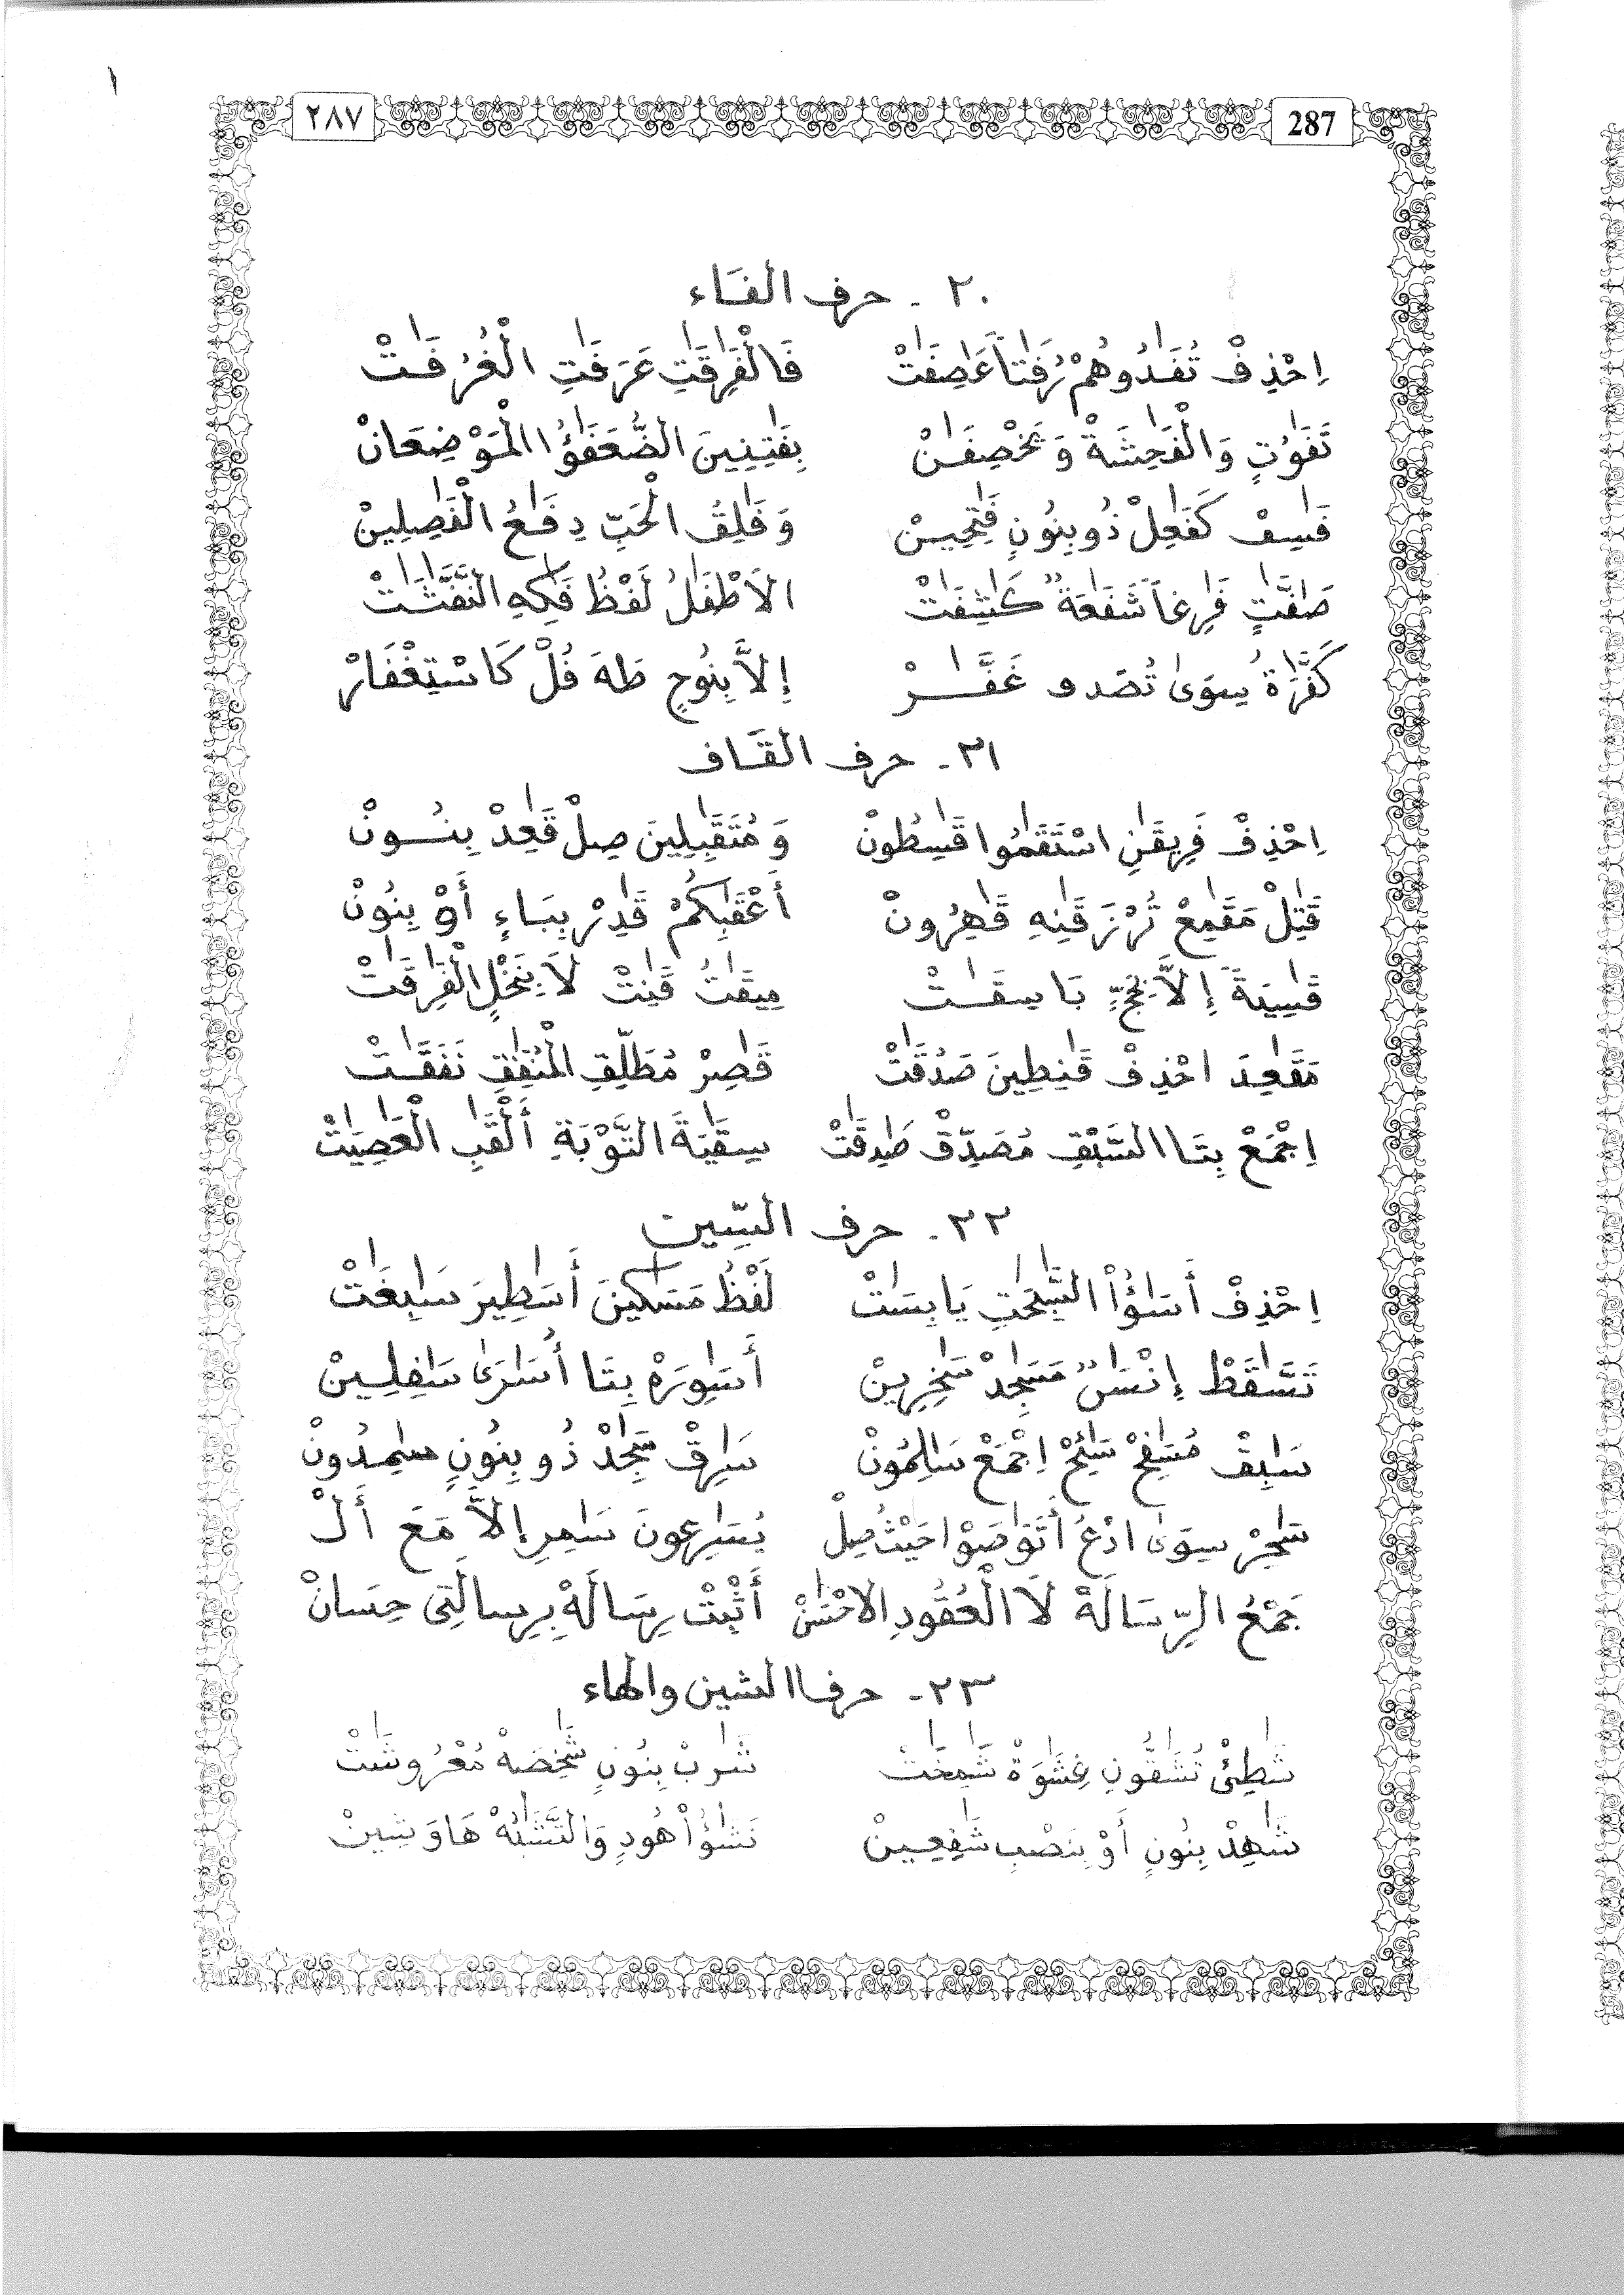 ٢٨٧ 287
٢٠ - حرف الفَاء
اِحْذِفْ تُفَٰدُوهُمْ رُفَٰتاً عَٰصِفَٰتْ فَالْفَٰرِقَٰتِ عَرَفَٰتِ الْغُرُفَٰتْ
تَفَٰوُتٍ وَالْفَٰحِشَةْ وَيَخْصِفَٰنْ بِفَٰتِنِينَ الضُّعَفَٰؤُا الْمَوْضِعَانْ
فَٰسِقْ كَفَٰعِلْ ذُو بِنُونٍ فَٰتِحِينْ وَفَٰلِقُ الْحَبِّ دِفَٰعُ الْفَٰصِلِينْ
صَٰفَّٰتٍ فَٰرِغاً شَفَٰعَةٌ كَٰشِفَٰتْ الَاطْفَٰلُ لَفْظُ فَٰكِهِ النَّفَّٰثَٰتْ
كَفَّٰرَةُ سِوَىٰ تُصَد و غَفَّٰرْ إِلاَّ بِنُوحٍ طَهَ قُلْ كَاسْتِغْفَارْ
٢١ - حرف القَاف
اِحْذِفْ فَرِيقَٰنِ اسْتَقَٰمُوا قَٰسِطُونْ وَمُتَقَٰبِلِينَ صِلْ قَٰعِدْ بِنُونْ
قَٰتِلْ مَقَٰمِعْ تُرْزَقَٰنِهِ قَٰهِرُونْ أَعْقَٰبِكُمْ قَٰدِرْ بِبَاءٍ أَوْ بِنُونْ
قَٰسِيَةَ إِلاَّ بِحَجٍّ بَاسِقَٰتْ مِيقَٰتُ قَٰنِتْ لاَ بِنَحْلٍ الْفَٰرِقَٰتْ
مَقَٰعِدَ احْذِفْ قَنَٰطِينَ صَدُقَٰتْ قَٰصِرْ مُطَلَّقِ الْمُنَٰفِقِ نَفَقَٰتْ
اِجْمَعْ بِتَا السَّبْقِ مُصَدِّقْ صَٰدِقَٰتْ سِقَٰيَةَ التَّوْبَةِ أَلْقَٰبِ الْعَٰصِيَٰتْ
٢٢ - حرف السّين
اِحْذِفْ أَسَٰؤُاْ السَّٰبِحَٰتِ يَابِسَٰتْ لَفْظُ مَسَٰكِينَ أَسَٰطِيرَ سَٰبِغَٰتْ
تَسَّٰقَطْ إِنْسَٰنٌ مَسَٰجِدْ سَٰخِرِينْ أَسَٰوِرَةْ بِتَا أُسَٰرَىٰ سَٰفِلِينْ
سَٰبِقْ مُسَٰفِحْ سَٰئِحْ اِجْمَعْ سَٰلِمُونْ سَٰرِقْ سَٰجِدْ ذُو بِنُونٍ سَٰمِدُونْ
سَٰحِرْ سِوَىٰ ادْعُ أَتَوَاصَوْا حَيْثُ صِلْ يُسَٰرِعُونَ سَٰمِرِ إِلاَّ مَعَ أَلْ
جَمْعُ الرِّسَالَةْ لَا الْعُقُودِ الاحْسَٰنْ أَثْبِتْ رِسَالَهْ بِرِسالَتِى حِسَانْ
٢٣ - حرفا الشين والهاء
شَٰطِئْ تُشَٰقُّونِ غِشَٰوَةْ شَٰمِخَٰتْ شَٰرِبْ بِنُونٍ شَٰخِصَةْ مَعْرُوشَٰتْ
شَٰهِدْ بِنُونٍ أَوْ بِنَصْبِ شَٰفِعِينْ نَشَٰؤُاْ هُودٍ وَالتَّشَٰبُهْ هَا وَشِينْ